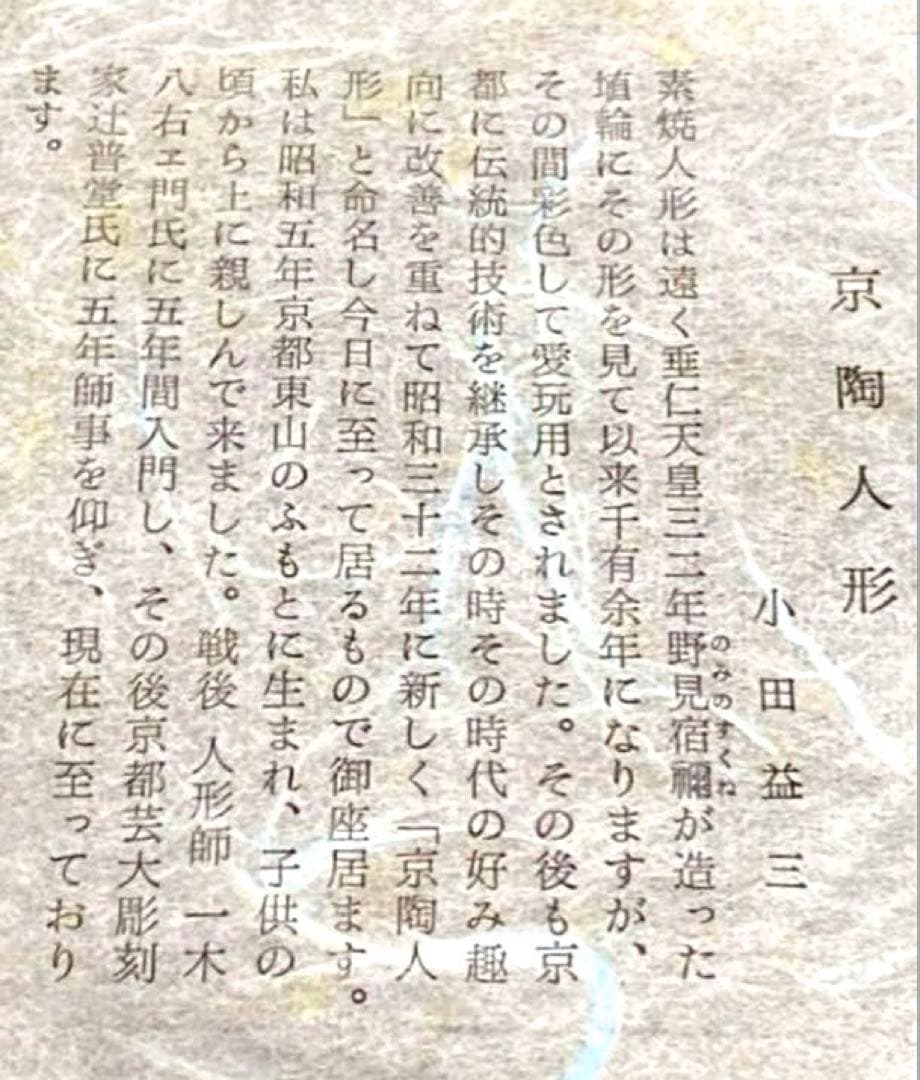 京陶人形
小田益三
素焼人形は遠く垂仁天皇三二年野見宿禰が造った
のみのすくね
埴輪にその形を見て以来千有余年になりますが、
その間彩色して愛玩用とされました。その後も京
都に伝統的技術を継承しその時その時代の好み趣
向に改善を重ねて昭和三十二年に新しく「京陶人
形」と命名し今日に至って居るもので御座居ます。
私は昭和五年京都東山のふもとに生まれ、子供の
頃から土に親しんで来ました。戦後 人形師 一木
八右ェ門氏に五年間入門し、その後京都芸大彫刻
家辻普堂氏に五年師事を仰ぎ、現在に至っており
ます。